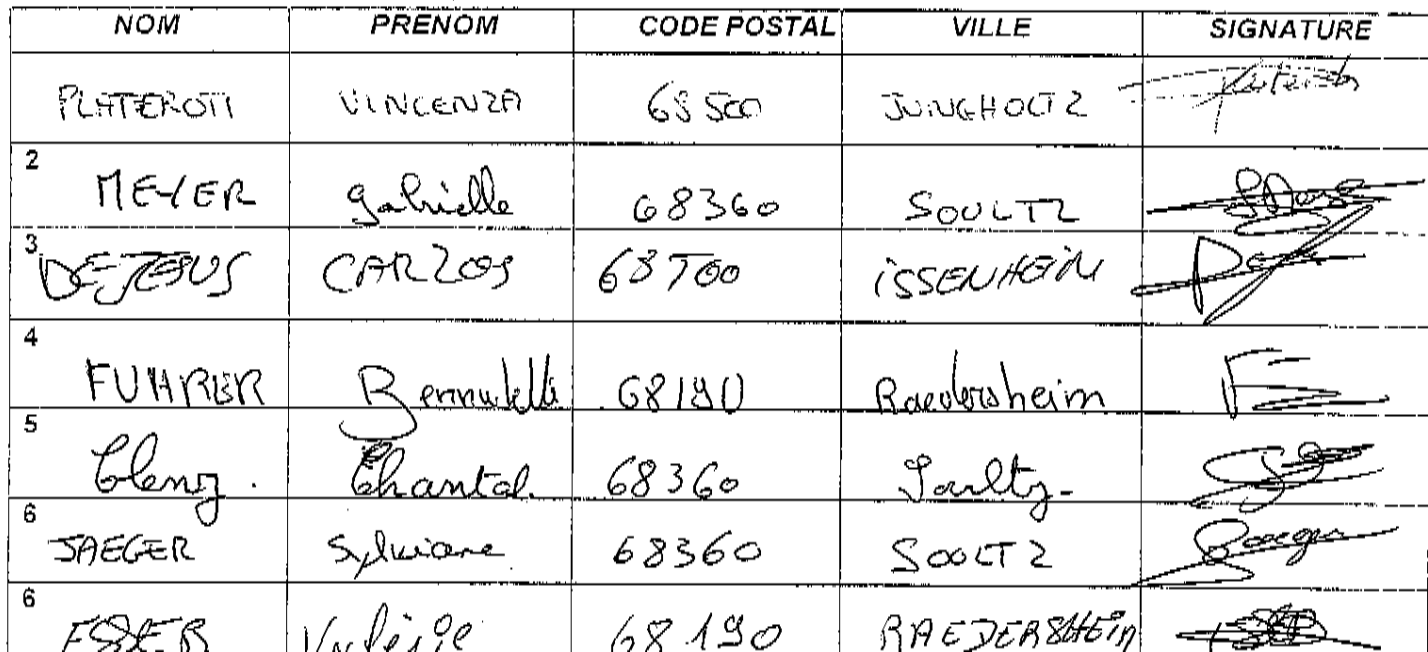 NOM PRENOM CODE POSTAL VILLE SIGNATURE
PLATEROTI VINCENZA 68500 JUNGHOLTZ
2 MEYER Gabrielle 68360 SOULTZ
3 DE JESUS CARLOS 68500 ISSENHEIM
4 FUHRER 68190 Raedersheim
5 Chantal 68360 Soultz
6 JAEGER Sylviane 68360 SOULTZ
6 ESSER Valérie 68190 RAEDERSHEIM